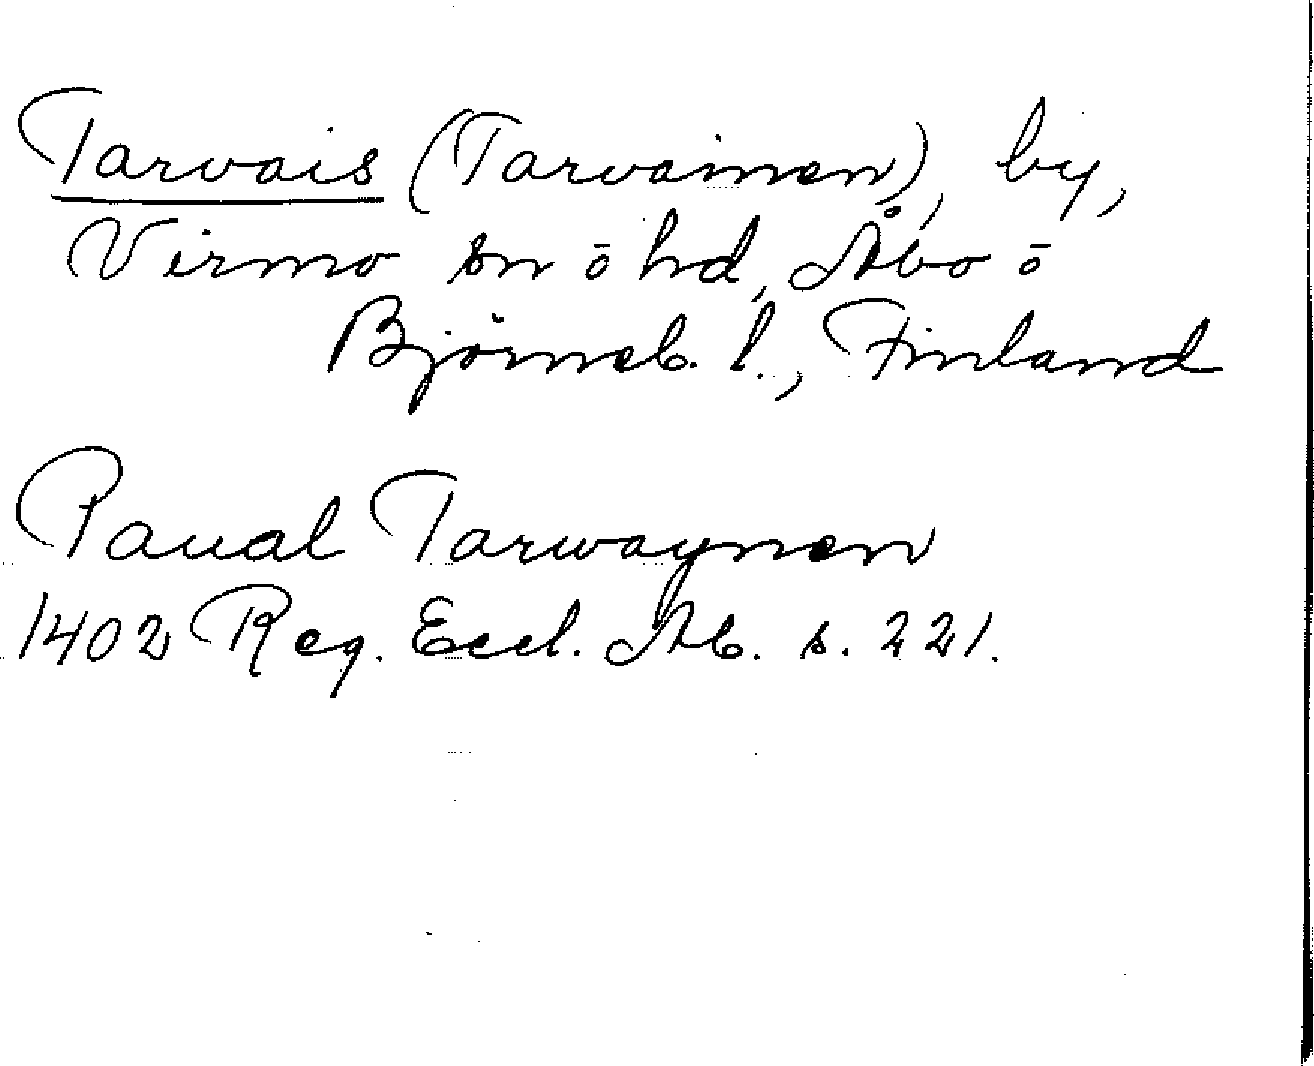 Tarvais (Tarvainen), by,
Virmo sn ō hd, Åbo ō
Björneb. l., Finland
Paual Tarwaynen
1402 Reg. Eccl. Ab. s. 221.